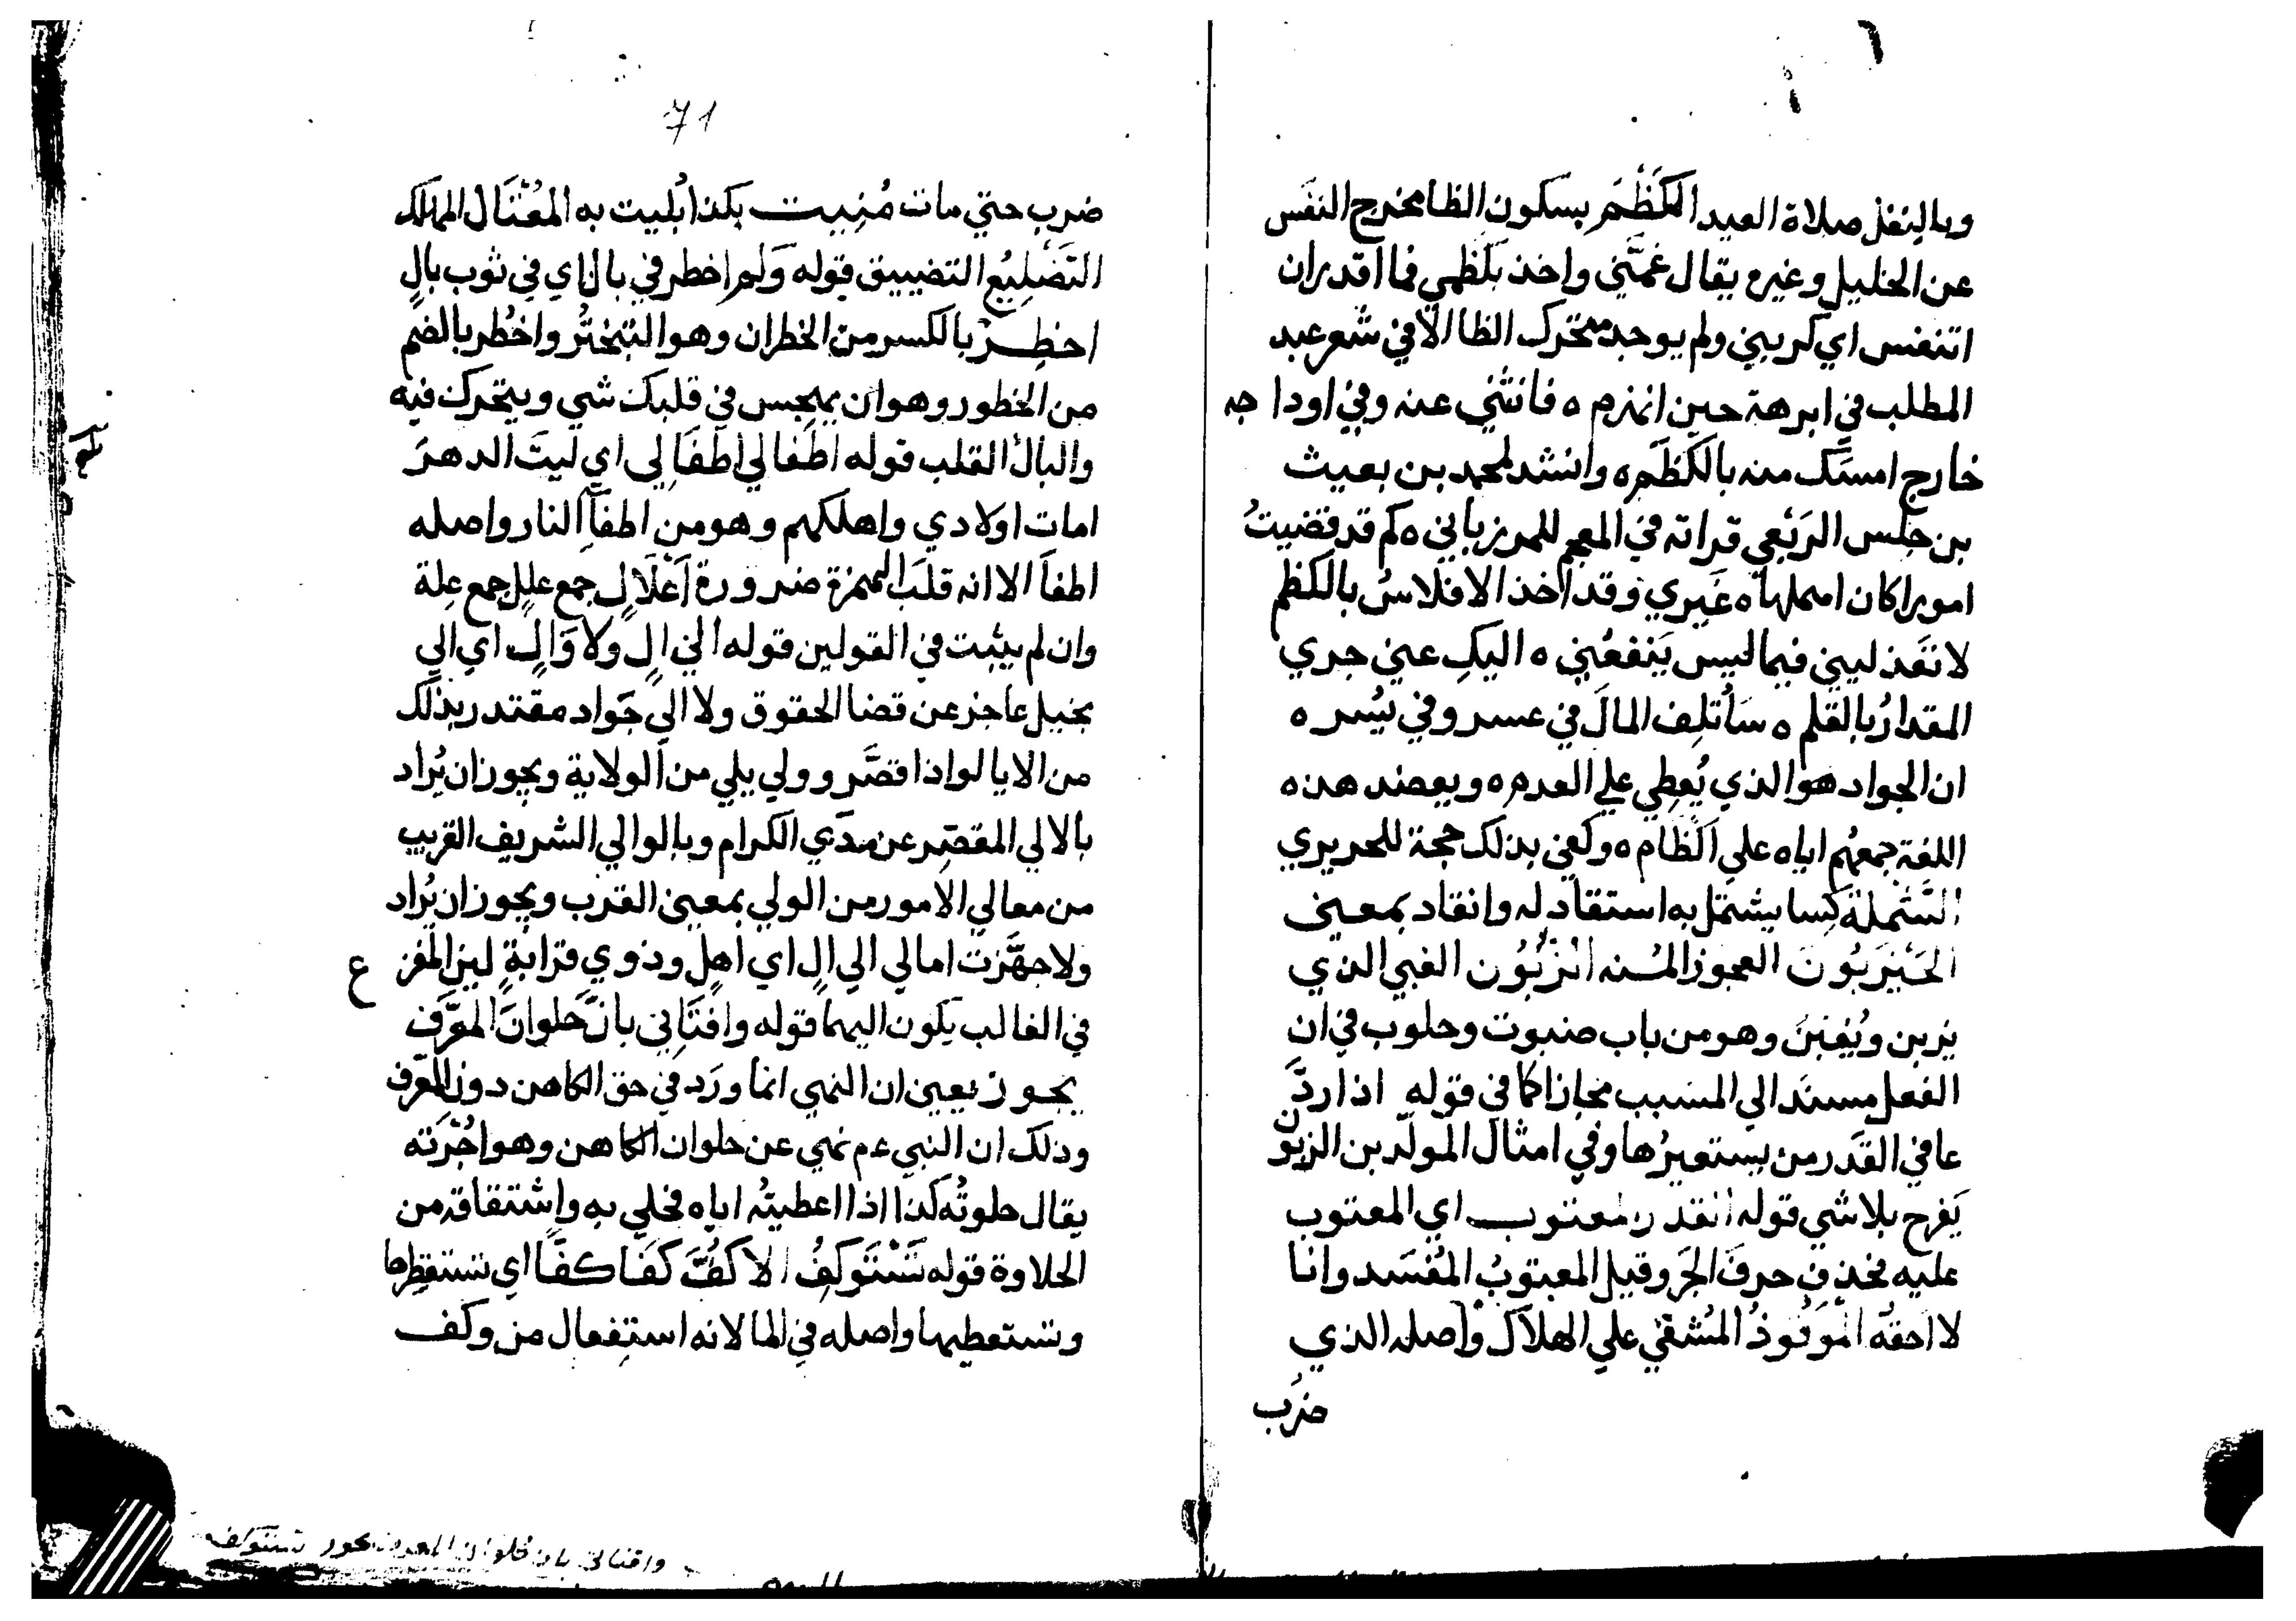 وبالنفل صلاة العيد الكَظْمَ بسكون الظا مخرج النفَس
عن الخليل وغيره يقال غمَّني واخذ بكظمي فما اقدر ان
اتنفس اي كربني ولم يوجد متحرك الظا الا في شعر عبد
المطلب في ابرهة حين انهزم ه فانثني عنه وفي اوداجه
خارج امسَك منه بالكَظَم ه وانشد لمحمد بن بعيث
بن حلس الربَعي قراته في المعجم للمرزباني ه كم قد قضيتُ
امورا كان اهملها ه غَيري وقد اخذ الافلاسُ بالكَظَم
لا تعَذليني فيما ليس يَنفعُني ه اليكِ عني جري
المقدارُ بالقلم ه سَأُتلِف المالَ في عسر وفي يُسر ه
ان الجواد هو الذي يُعطِي علي العدم ه ويعضد هذه
اللغة جمعهُم اياه علي الكظام ه وكفي بذلك حجة للحريري
الشَّمْلة كسا يشتمل به استقاد له وانقاد بمعني
الحَيْزَبُونَ العجوز المُسنه الزَّبُون الغبي الذي
يزبن ويُغبَنُ وهو من باب ضبوت وحلوب في ان
الفعل مسنَد الي المسَبب مجازا كما في قوله اذا ردَّ
عافي القَدَر من يستعيرُها وفي امثال المولَّدين الزبون
يَفرح بلا شي قوله انقد ر لمعتوب اي المعتوب
عليه فحذف حرفَ الجَر وقيل المعتوبُ المُفسَد وانا
لا احقه المَوقُوذُ المُشفي علي الهلاك واصله الذي
ضَرب
71
ضرب حتي مات مُنيت بكذا اُبليت به المُغْتَال المهلك
التَضْلِيعُ التضييق قوله وَلم اخطر في بال اي في ثوب بالٍ
اخطِــرْ بالكسر من الخطران وهو التبَختُر واخُطر بالضم
من الخطور وهو ان يهجس في قلبك شي ويتحرك فيه
والبالُ القلب قوله اطفا لي اطفَا لِي اي ليتَ الدهرَ
امات اولادي واهلكهم وهو من اطفأ النار واصله
اطفَا الا انه قلَبَ الهمزة ضرورة اَعْلَالٍ جمع عليل جمع علة
وان لم يثبت في القولين قوله الي الٍ ولا وَالٍ اي الي
بخيل عاجز عن قضا الحقوق ولا الي جَواد مقتدر بذلك
من الا يالو اذا قصَّر وولي يلي من الولاية ويجوز ان يُراد
بالالي المقصِّر عن مدَي الكرام وبالوالي الشريف القريب
من معالي الامور من الولي بمعني القرب ويجوز ان يُراد
ولا جهَّزتَ امالي الي الٍ اي اهل وذوي قرابةٍ لين المفز
ع
في الغالب يكون اليهما قوله وافتَاني بانَّ حُلوانَ المعرَّف
يجـوز يعني ان النهي انما ورَد في حق الكاهن دون المعرف
وذلك ان النبي ءم نهي عن حلوان الكاهن وهو اجُرَته
يقال حلوتُه كَذا اذا اعطيتُه اياه فحلي به واشتقاقه من
الحلاوة قوله تَسْتَوكِفُ الاكُفَّ كفَا كفَا اي تستقطِرها
وتستعطيها واصله في الما لانه استِفعال من وكَف
وافتاني بان حلوان المعرف يجوز تستوكف